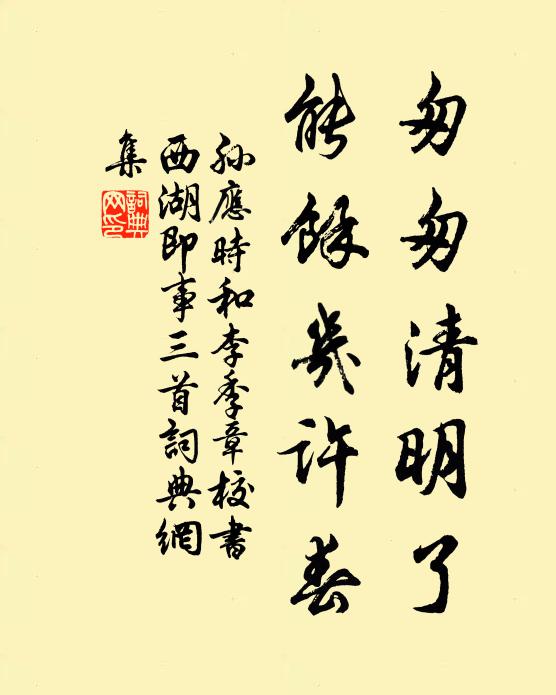 匆匆清明了
能餘幾許春
孫應時和李季章校書
西湖即事三首詞典網
集
詞典網印